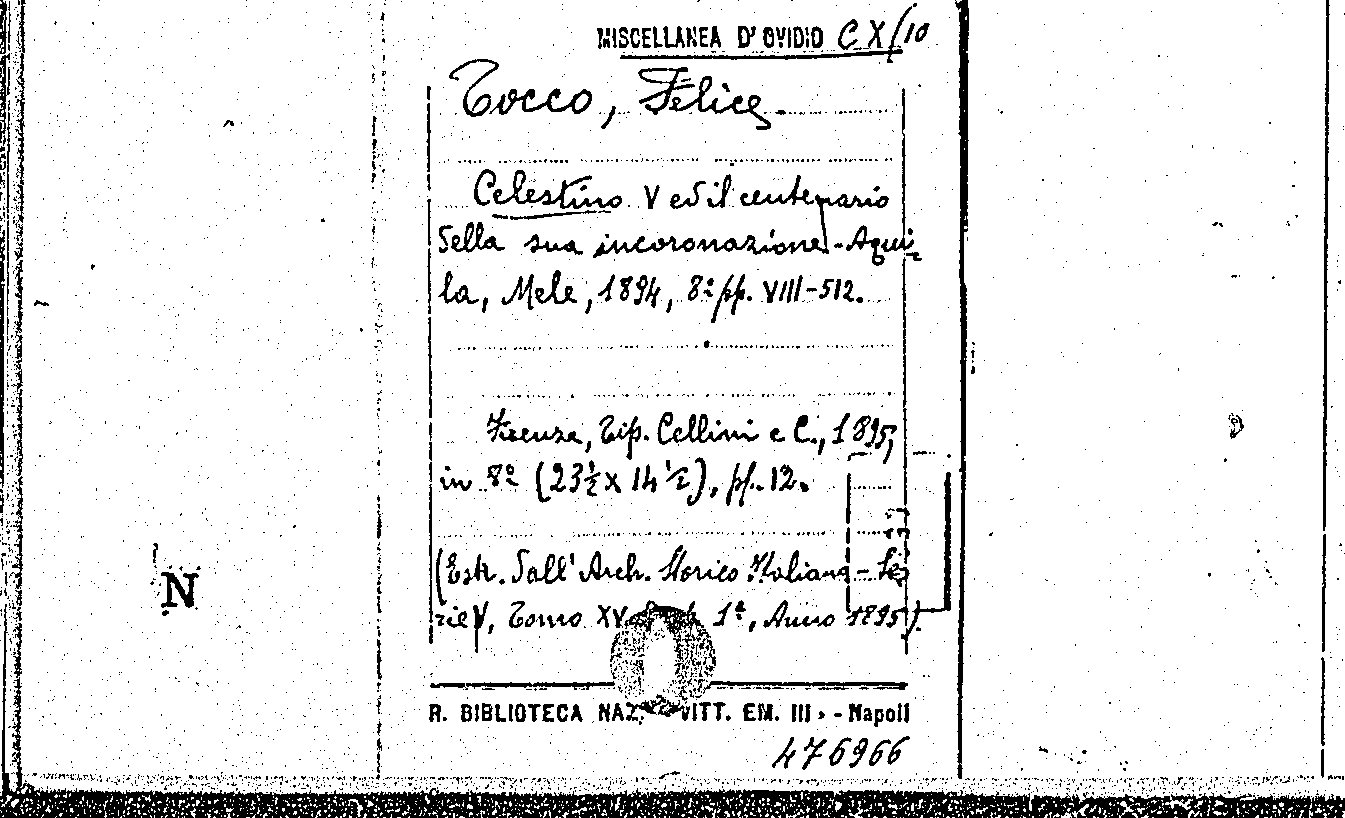 MISCELLANEA D'OVIDIO CX/10
Tocco, Felice.
Celestino V ed il centenario
della sua incoronazione - Aqui-
la, Mele, 1894, 8º pp. VIII-512.
Firenze, Tip. Cellini e C., 1895,
in 8º (23½ x 14½), pp. 12.
(Estr. dall'Arch. Storico Italiano - Se-
rie V, Tomo XV 1ª, Anno 1895).
R. BIBLIOTECA NAZ. VITT. EM. III - Napoli
476966
N